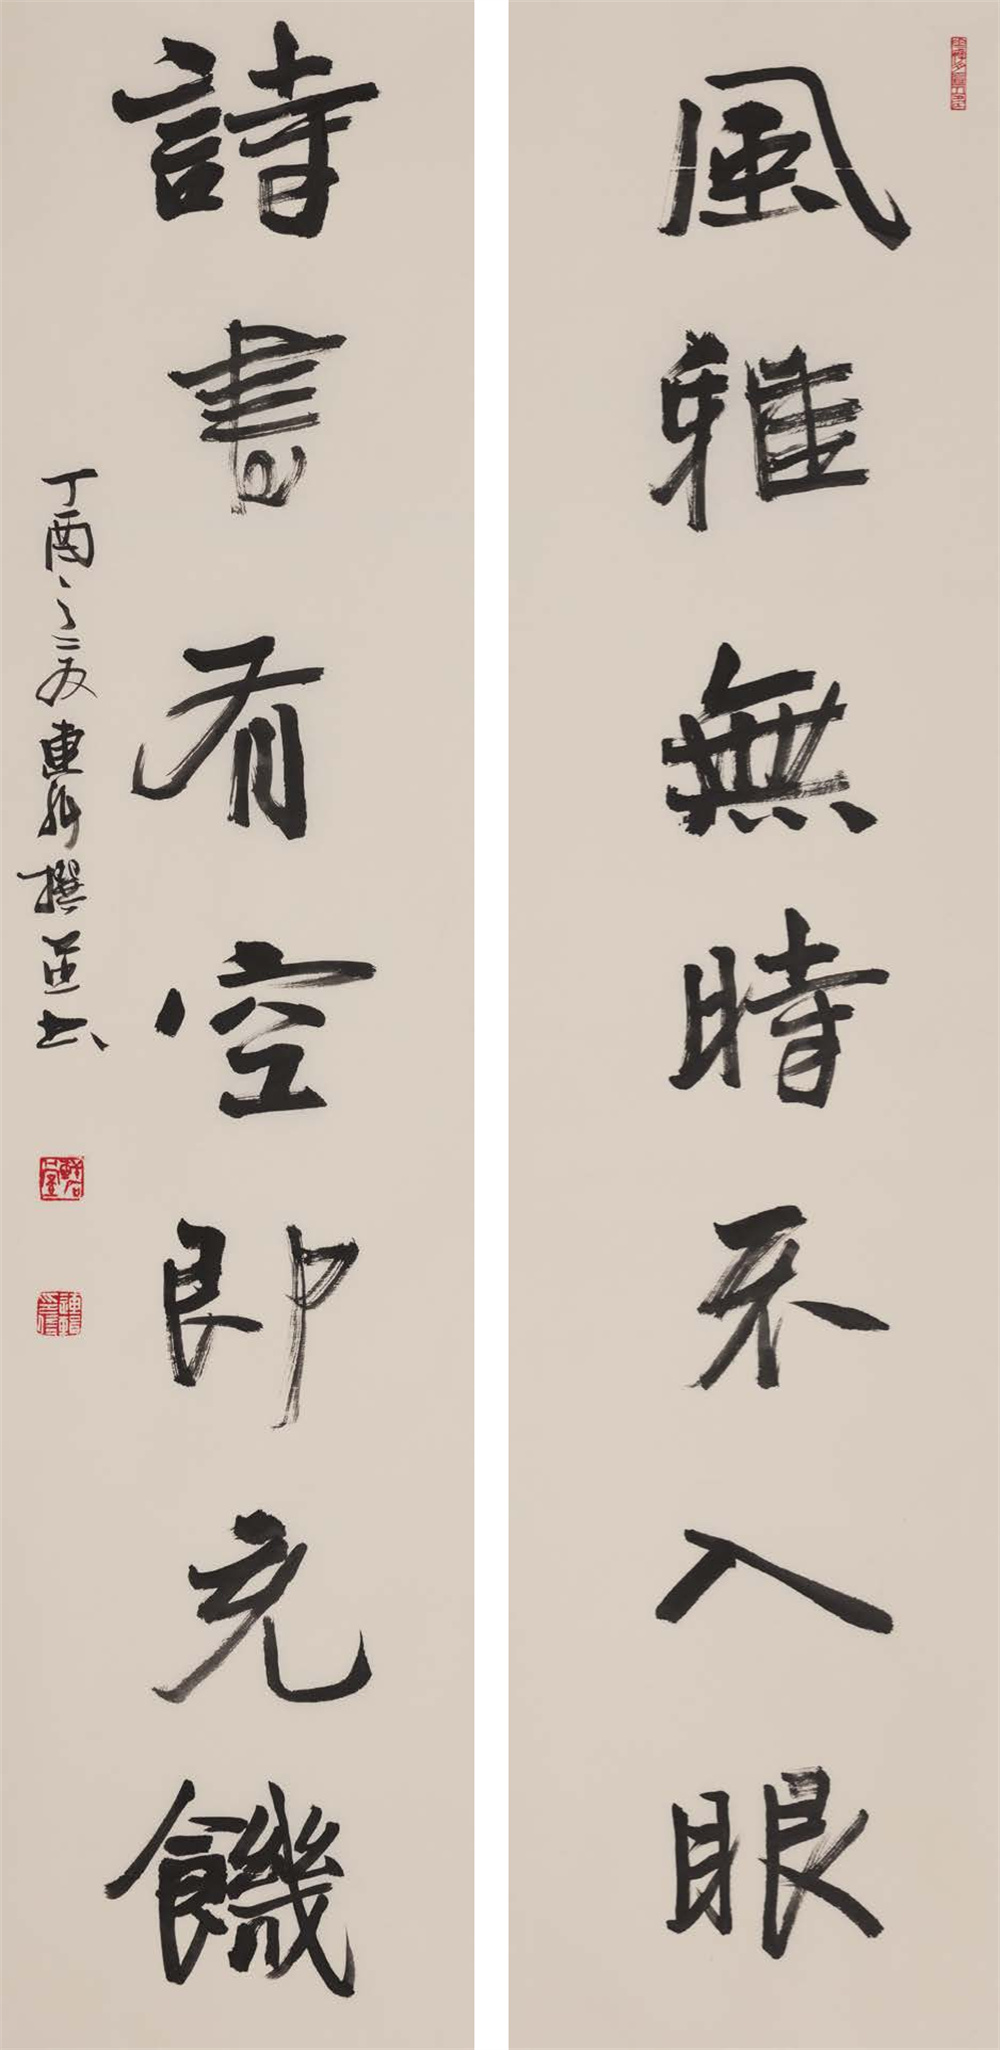 風雅無時不入眼
詩書有空即充饑
丁酉之夏連輝撰並书